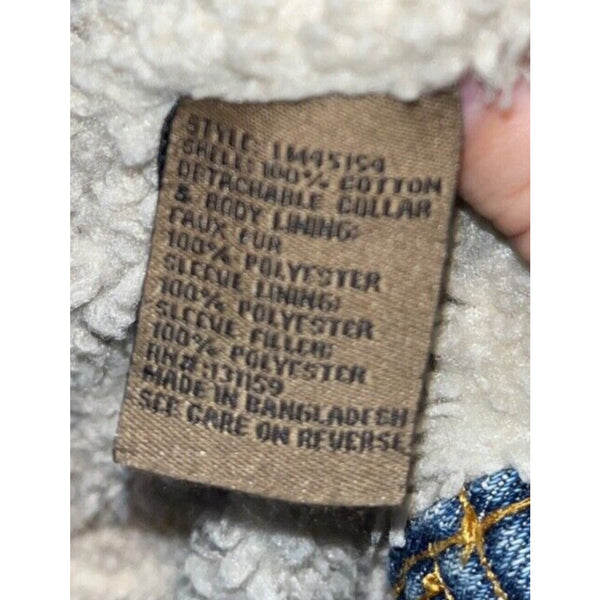 STYLE: 1M45154
SHELL: 100% COTTON
DETACHABLE COLLAR
& BODY LINING:
FAUX FUR
100% POLYESTER
SLEEVE LINING:
100% POLYESTER
SLEEVE FILLER:
100% POLYESTER
RN#:131159
MADE IN BANGLADESH
SEE CARE ON REVERSE